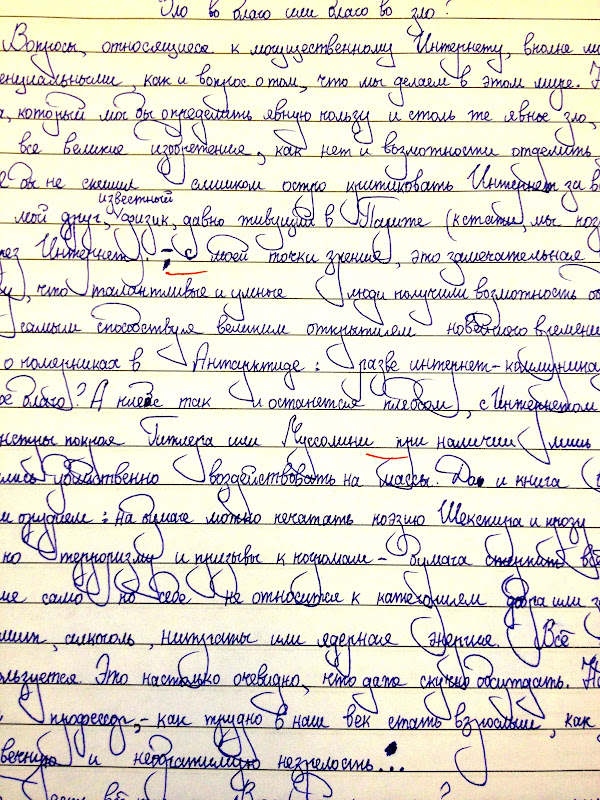 Зло во благо или благо во зло?
Вопросы, относящиеся к могущественному Интернету, вполне мо
енциальными, как и вопрос о том, что мы делаем в этом мире. Н
а, который мог бы определить явную пользу и столь же явное зло,
все великие изобретения, как нет и возможности отделить
бы не спешил слишком остро критиковать Интернет за в
известный
мой друг, физик, давно живущий в Париже (кстати, мы поз
рез Интернет), - с моей точки зрения, это замечательная
у, что талантливые и умные люди получили возможность об
самым способствуя великим открытиям новейшего времени
о полярниках в Антарктиде: разве интернет-коммуника
ое благо? А плебс так и останется плебсом, с Интернетом
нструы покроя Гитлера или Муссолини при наличии лишь
лись убийственно воздействовать на массы. Да и книга
м орудием: на бумаге можно печатать поэзию Шекспира и прозу
но терроризму и призывы к погромам - бумага стерпит всё
ие само по себе не относится к категориям добра или з
мит, алкоголь, нитраты или ядерная энергия. Всё
льзуется. Это настолько очевидно, что даже скучно обсуждать. Но
профессор, - как трудно в наш век стать взрослым, как
вечную и необратимую незрелость...